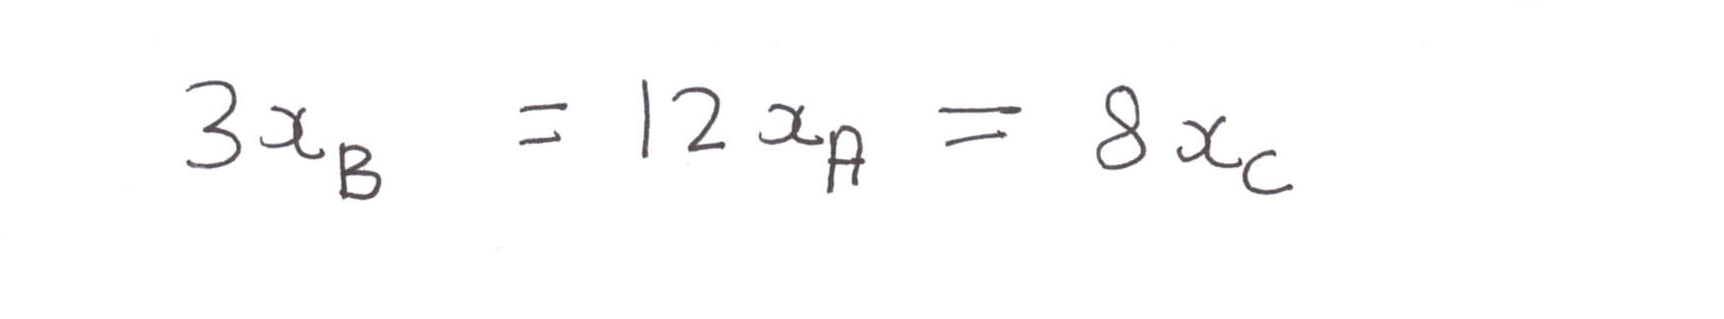 3x_B = 12x_A = 8x_C